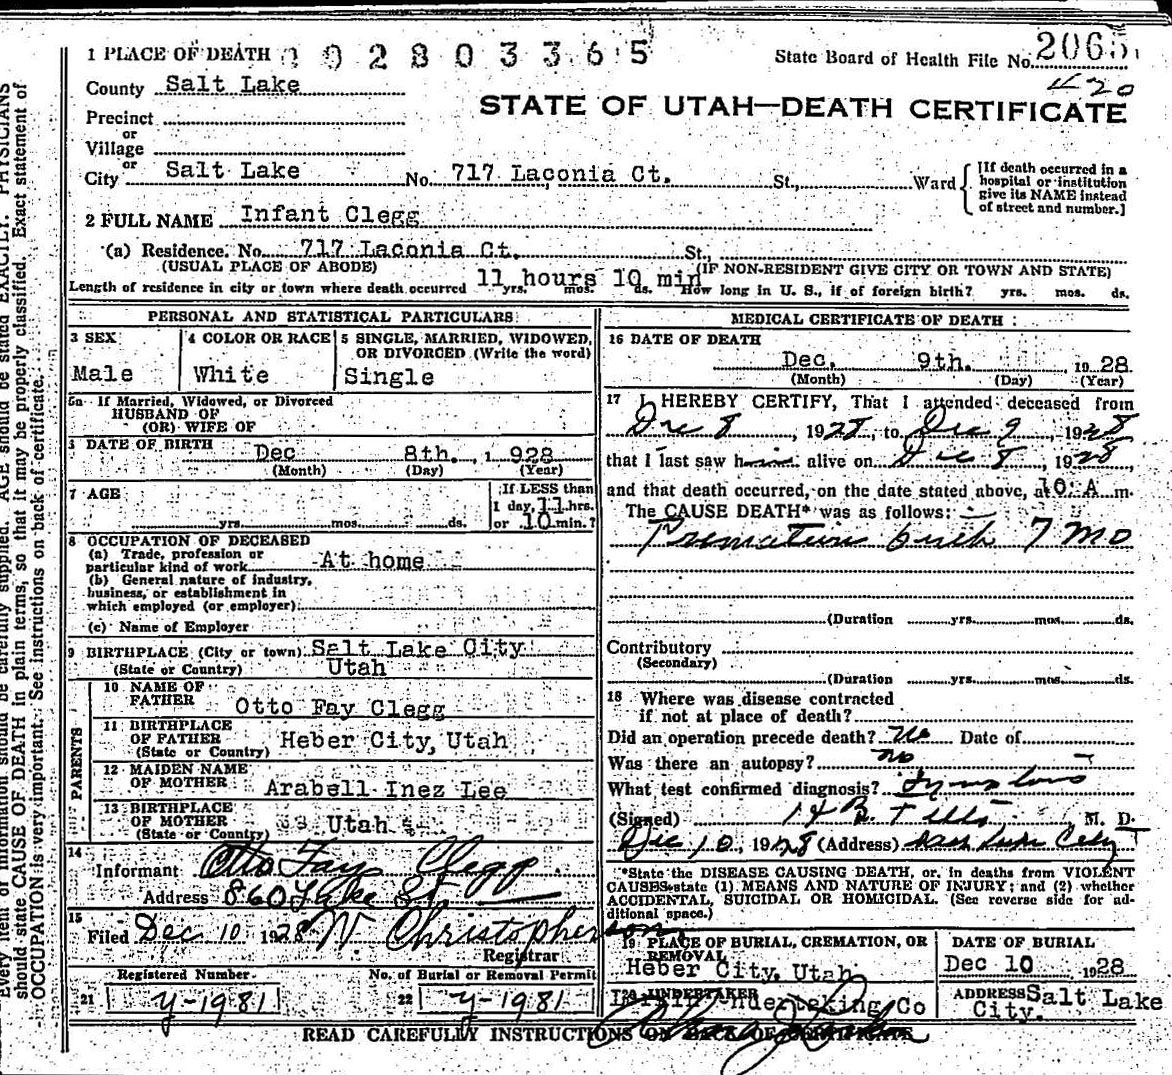 1 PLACE OF DEATH 02803365 State Board of Health File No. 2065
420
County Salt Lake
STATE OF UTAH—DEATH CERTIFICATE
Precinct
or
Village
or
City Salt Lake No. 717 Laconia Ct. St., Ward
[If death occurred in a
hospital or institution
give its NAME instead
of street and number.]
2 FULL NAME Infant Clegg
(a) Residence. No. 717 Laconia Ct. St.,
(USUAL PLACE OF ABODE) (IF NON-RESIDENT GIVE CITY OR TOWN AND STATE)
Length of residence in city or town where death occurred 11 hours 10 min yrs. mos. ds. How long in U. S., if of foreign birth? yrs. mos. ds.
PERSONAL AND STATISTICAL PARTICULARS
3 SEX
Male
4 COLOR OR RACE
White
5 SINGLE, MARRIED, WIDOWED,
OR DIVORCED (Write the word)
Single
5a If Married, Widowed, or Divorced
HUSBAND OF
(OR) WIFE OF
DATE OF BIRTH
Dec 8th. 1928
(Month) (Day) (Year)
7 AGE
yrs. mos. ds.
If LESS than
1 day, 11 hrs.
or 10 min.?
8 OCCUPATION OF DECEASED
(a) Trade, profession or
particular kind of work At home
(b) General nature of industry,
business, or establishment in
which employed (or employer)
(c) Name of Employer
9 BIRTHPLACE (City or town) Salt Lake City
(State or Country) Utah
PARENTS
10 NAME OF
FATHER Otto Fay Clegg
11 BIRTHPLACE
OF FATHER Heber City, Utah
(State or Country)
12 MAIDEN NAME
OF MOTHER Arabell Inez Lee
13 BIRTHPLACE
OF MOTHER Utah
(State or Country)
14
Informant Otto Fay Clegg
Address 860 Lake St.
15
Filed Dec 10 1928 W Christopherson
Registrar
Registered Number No. of Burial or Removal Permit
21 y-1981 22 y-1981
MEDICAL CERTIFICATE OF DEATH
16 DATE OF DEATH
Dec. 9th. 1928
(Month) (Day) (Year)
17 I HEREBY CERTIFY, That I attended deceased from
Dec 8, 1928, to Dec 9, 1928
that I last saw him alive on Dec 8, 1928,
and that death occurred, on the date stated above, at 10. A. m.
The CAUSE DEATH* was as follows:
Premature birth 7 mo
(Duration yrs. mos. ds.
Contributory
(Secondary)
(Duration yrs. mos. ds.
18 Where was disease contracted
if not at place of death?
Did an operation precede death? No Date of
Was there an autopsy? no
What test confirmed diagnosis?
(Signed) M. D.
Dec 10, 1928 (Address) Salt Lake City
*State the DISEASE CAUSING DEATH, or, in deaths from VIOLENT
CAUSES state (1) MEANS AND NATURE OF INJURY; and (2) whether
ACCIDENTAL, SUICIDAL OR HOMICIDAL. (See reverse side for additional space.)
19 PLACE OF BURIAL, CREMATION, OR
REMOVAL
Heber City, Utah
DATE OF BURIAL
Dec 10 1928
20 UNDERTAKER
Undertaking Co
ADDRESS Salt Lake
City.
READ CAREFULLY INSTRUCTIONS ON BACK OF CERTIFICATE
should state CAUSE OF DEATH in plain terms, so that it may be properly classified. Exact statement of
OCCUPATION is very important. See instructions on back of certificate.